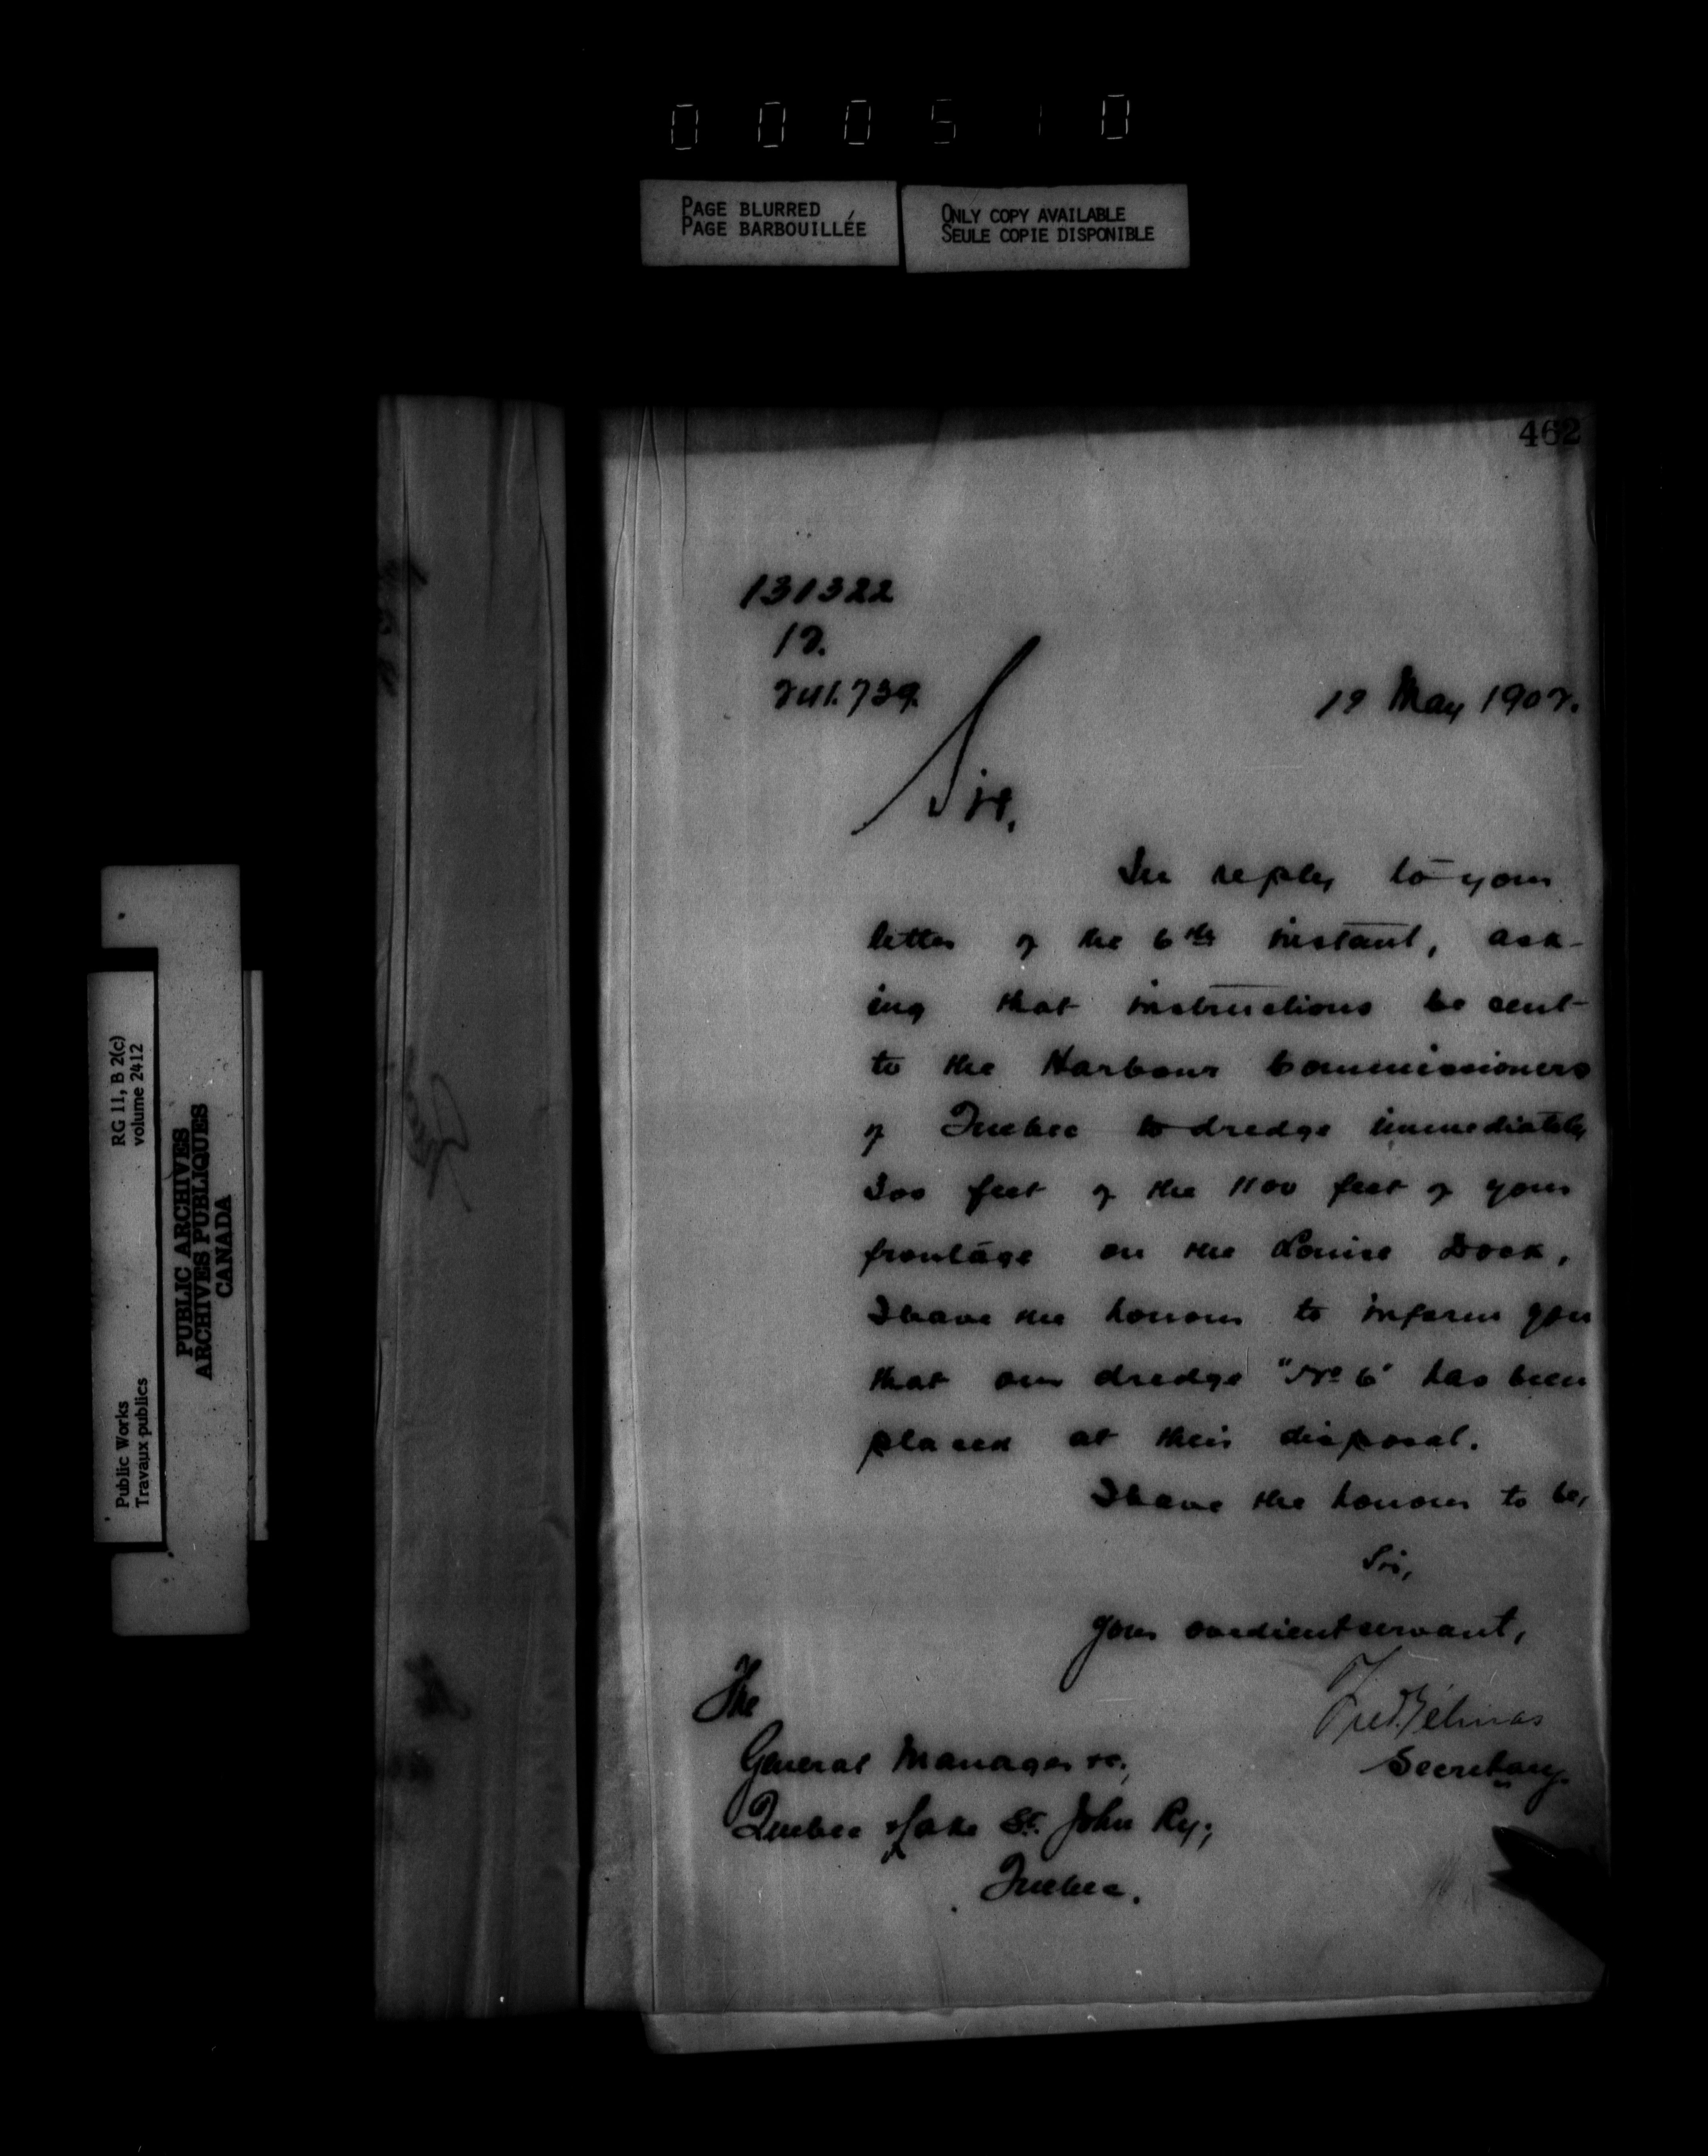 000510
PAGE BLURRED
PAGE BARBOUILLÉE
ONLY COPY AVAILABLE
SEULE COPIE DISPONIBLE
462
131322
12.
241.739.
19 May 1902.
Sir,
In reply to your
letter of the 6th instant, ask-
ing that instructions be sent
to the Harbour Commissioners
of Quebec to dredge immediately
300 feet of the 1100 feet of your
frontage on the Louise Dock,
I have the honour to inform you
that our dredge "No 6" has been
placed at their disposal.
I have the honour to be,
Sir,
Your obedient servant,
Fred Gélinas
Secretary.
The
General Manager &c.,
Quebec & Lake St. John Ry.,
Quebec.
RG 11, B 2(c)
volume 2412
Public Works
Travaux publics
PUBLIC ARCHIVES
ARCHIVES PUBLIQUES
CANADA